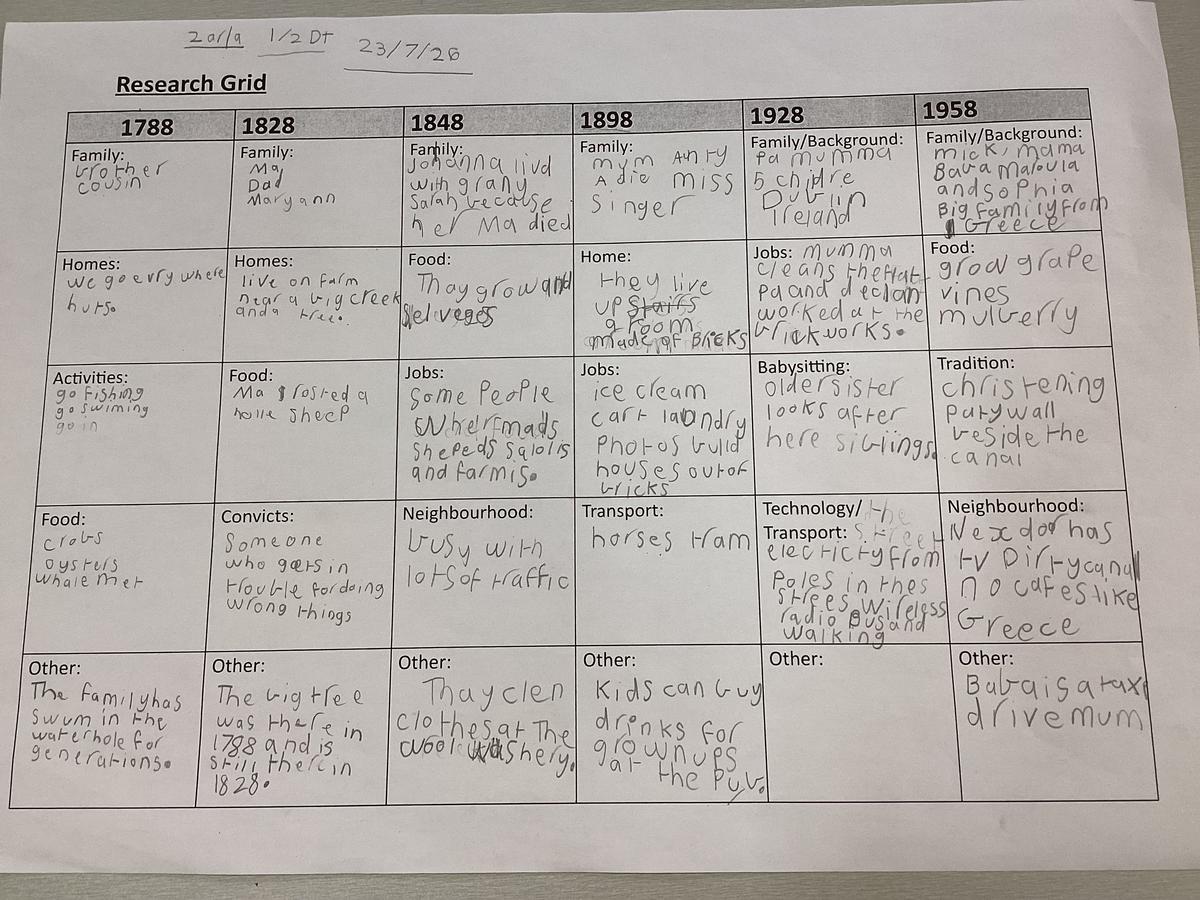 1/2 DT 23/7/26
Research Grid
1788 1828 1848 1898 1928 1958
Family:
brother
cousin
Family:
Ma
Dad
Mary ann
Family:
Johanna livd
with grany
Sarah because
her Ma died
Family:
mum Anty
Adie miss
Singer
Family/Background:
Pa mumma
5 chidre
Dublin
Ireland
Family/Background:
mick, mama
Baba Maroula
and sophia
Big family from
Greece
Homes:
we go evry where
huts.
Homes:
live on farm
near a big creek
and a tree.
Food:
Thay grow and
Sel veges
Home:
they live
up stairs
a room
made of Bricks
Jobs: mumma
cleans the flat
pa and declan
worked at the
brickworks.
Food:
grow grape
vines
mulberry
Activities:
go fishing
go swiming
go in
Food:
Ma rosted a
hole sheep
Jobs:
Some People
Wher mads
Shepeds Salolis
and farmis.
Jobs:
ice cream
cart laundry
Photos build
houses out of
bricks
Babysitting:
older sister
looks after
here siblings.
Tradition:
christening
party wall
beside the
canal
Food:
crabs
oysters
whale met
Convicts:
Someone
who gets in
trouble for doing
wrong things
Neighbourhood:
busy with
lots of traffic
Transport:
horses tram
Technology/ the
Transport: Street
electricty from
Poles in thes
strees. Wireless
radio Bus and
walking
Neighbourhood:
Nex dor has
tv Dirty canal
no cafes like
Greece
Other:
The family has
swum in the
waterhole for
generations.
Other:
The big tree
was there in
1788 and is
still there in
1828.
Other:
Thay clen
clothes at The
wool washery.
Other:
Kids can buy
drinks for
grownups
at the Pub.
Other:
Other:
Baba is a taxi
drive mum